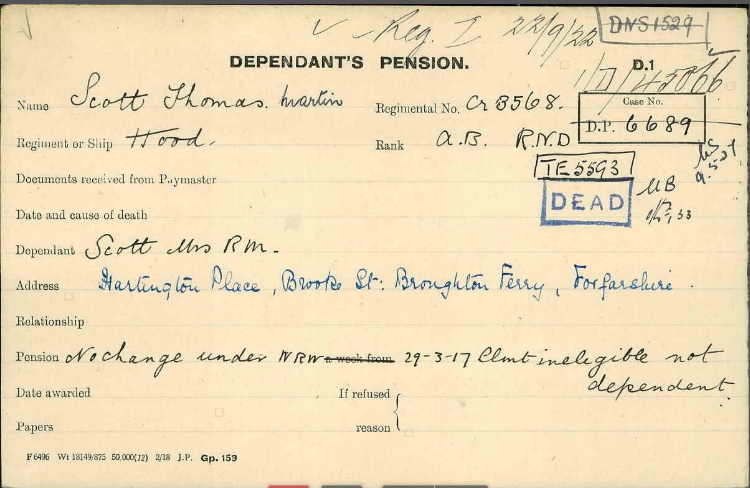 ✓ - Reg. I 22/9/22 DNS1529
DEPENDANT'S PENSION. D.1
1/D/45066
Name Scott Thomas. Martin Regimental No. CZ 3568. Case No.
Regiment or Ship Hood. Rank A.B. R.N.D D.P. 6689
Documents received from Paymaster TE5593
Date and cause of death DEAD MB
Dependant Scott Mrs R M.
Address Hartington Place, Brook St: Broughton Ferry, Forfarshire.
Relationship
Pension No change under NRW a week from 29-3-17 Clmt ineligible not
dependent.
Date awarded If refused
Papers reason
F 6496 Wt 18149/875 50,000(12) 2/18 J.P. Gp. 159